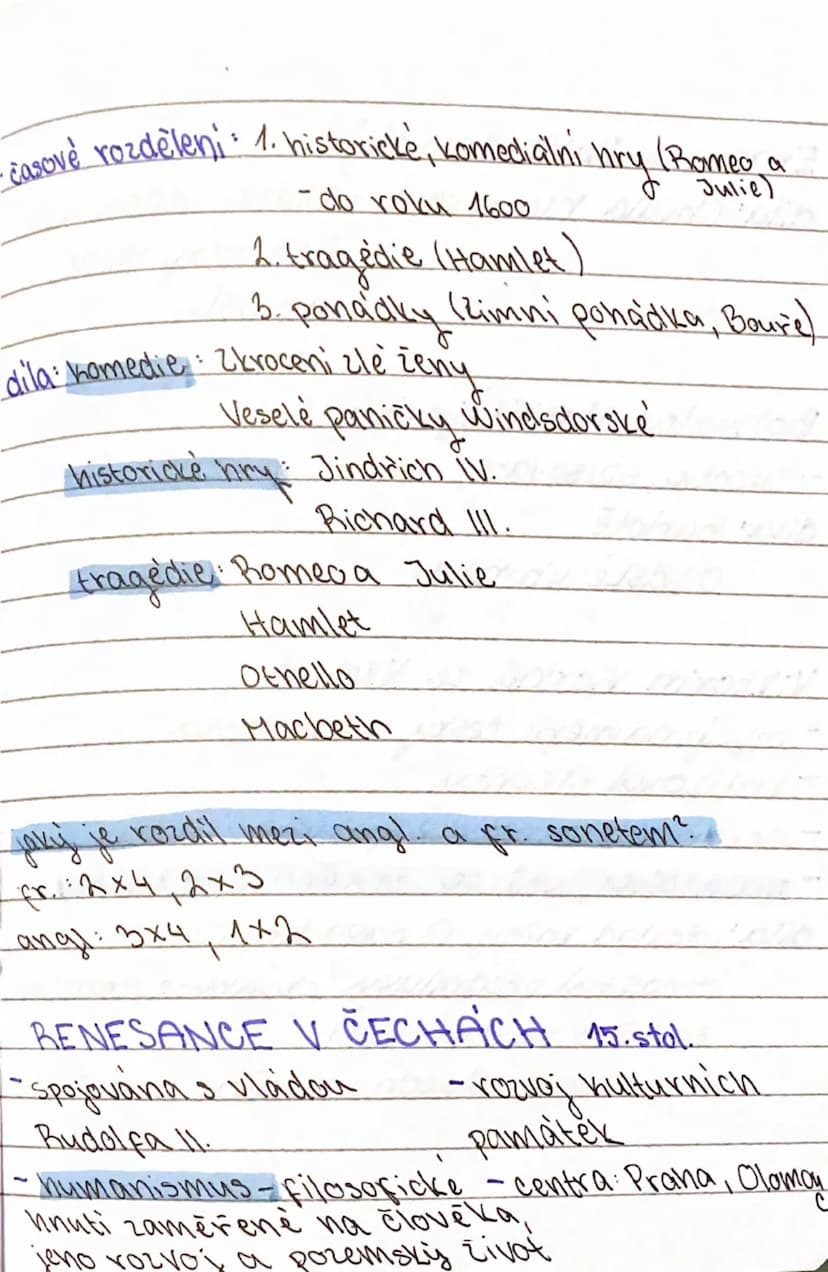 - časové rozdělení: 1. historické, komediální hry (Romeo a Julie)
- do roku 1600
2. tragédie (Hamlet)
3. pohádky (Zimní pohádka, Bouře)
díla: komedie: Zkrocení zlé ženy
Veselé paničky Windsdorské
historické hry: Jindřich IV.
Richard III.
tragédie: Romeo a Julie
Hamlet
Othello
Macbeth
jaký je rozdíl mezi angl. a fr. sonetem?
fr.: 2x4, 2x3
angl: 3x4, 1x2
RENESANCE V ČECHÁCH 15. stol.
- spojována s vládou
Rudolfa II.
- humanismus - filosofické
hnutí zaměřené na člověka,
jeho rozvoj a pozemský život
- rozvoj kulturních
památek
- centra: Praha, Olomouc